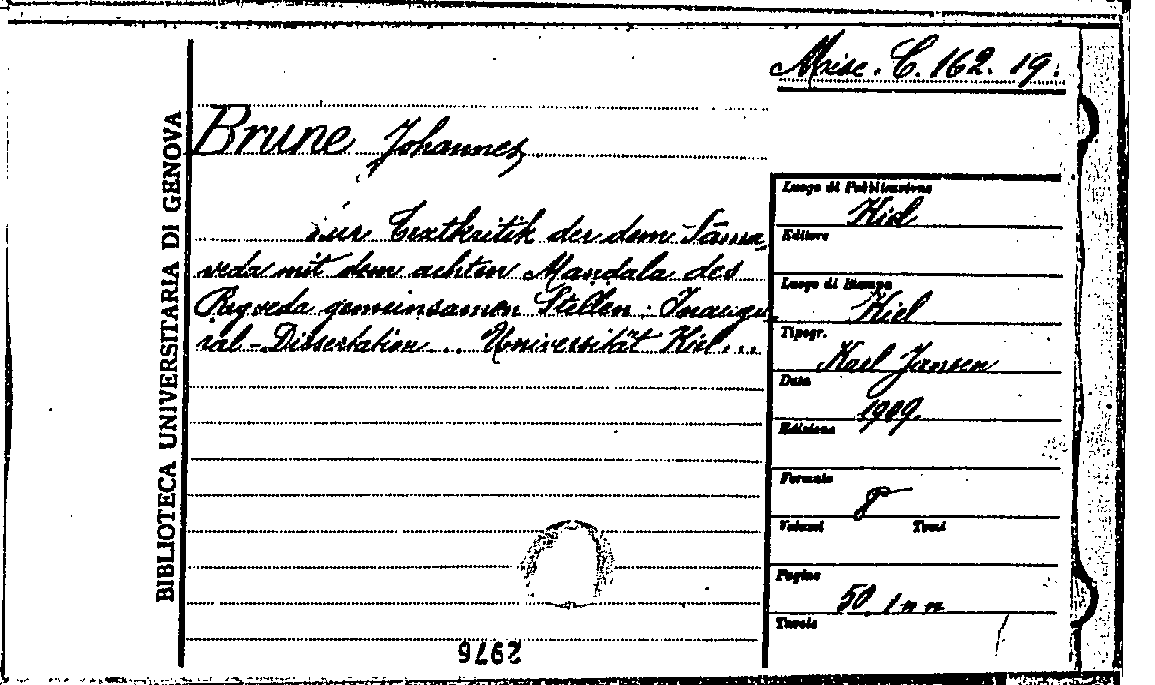 Misc. C. 162. 19.
BIBLIOTECA UNIVERSITARIA DI GENOVA
Brune Johannes
Zur Textkritik der dem Sāma-
veda mit dem achten Mandala des
Rigveda gemeinsamen Stellen: Inaugu-
ral-Dissertation... Universität Kiel...
Luogo di Pubblicazione
Kiel
Editore
Luogo di Stampa
Kiel
Tipogr.
Karl Jansen
Data
1909
Edizione
Formato
8°
Volumi Tomi
Pagine
50, 1 n n
Tavole
2976